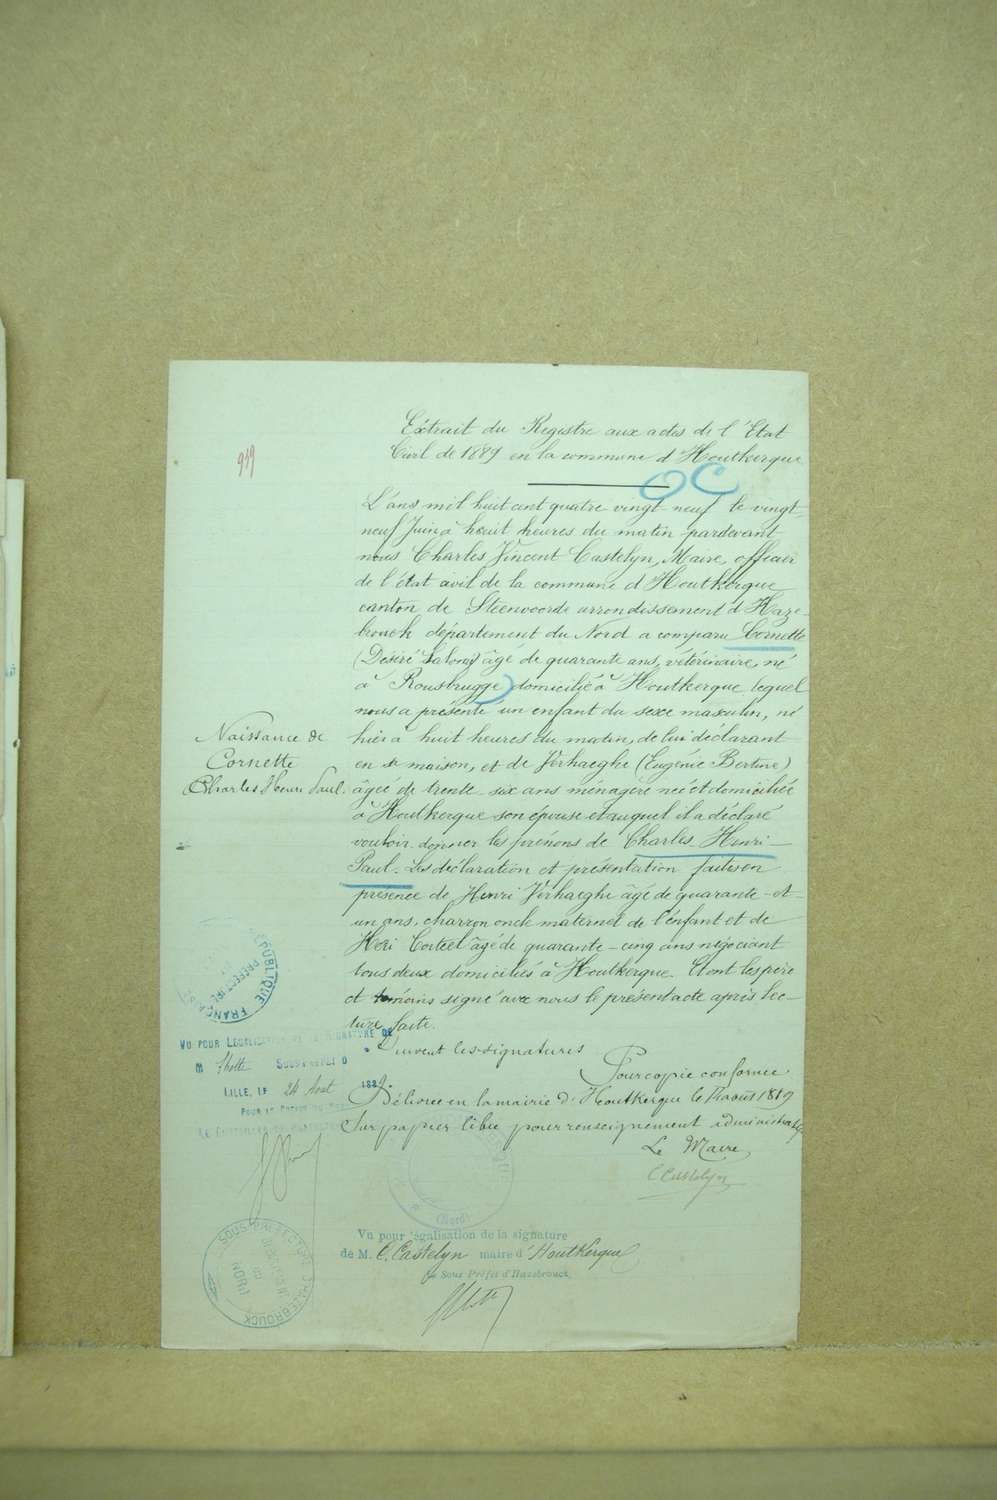 Extrait du Registre aux actes de l'Etat
Civil de 1889 en la commune d'Houtkerque
949
OC
L'ans mil huit cent quatre vingt neuf le vingt
neuf Juin à heuit heures du matin pardevant
nous Charles Vincent Castelyn, Maire, officier
de l'état civil de la commune d'Houtkerque
canton de Steenvoorde arrondissement d'Haze-
brouck département du Nord a comparu Cornette
(Désiré ) âgé de quarante ans, vétérinaire, né
à Rousbrugge domicilié à Houtkerque lequel
nous a présenté un enfant du sexe masculin, né
hier à huit heures du matin, de lui déclarant
en sa maison, et de Verhaeghe (Eugénie Bertine)
âgée de trente-six ans ménagère née et domiciliée
à Houtkerque son épouse et auquel il a déclaré
vouloir donner les prénoms de Charles Henri-
Paul. Les déclaration et présentation faites en
présence de Henri Verhaeghe âgé de quarante-et-
un ans, charron oncle maternel de l'enfant et de
Henri Corteel âgé de quarante-cinq ans négociant
tous deux domiciliés à Houtkerque. Et ont les père
et témoins signé avec nous le présent acte après lec-
ture faite.
Suivent les signatures
Naissance de
Cornette
Charles Henri Paul.
Pour copie conforme.
Délivrée en la mairie d'Houtkerque le août 1889
Sur papier libre pour renseignement administratif
Le Maire
C Castelyn
RÉPUBLIQUE FRANÇAISE
PRÉFECTURE
Vu pour Légalisation de la signature de
M Sous-Préfet d
Lille, le 24 Août 1889.
Pour le Préfet du Nord
Le Conseiller de Préfecture
(Nord)
Vu pour légalisation de la signature
de M. C. Castelyn maire d'Houtkerque
Le Sous-Préfet d'Hazebrouck,
SOUS-PRÉFECTURE D'HAZEBROUCK
NORD